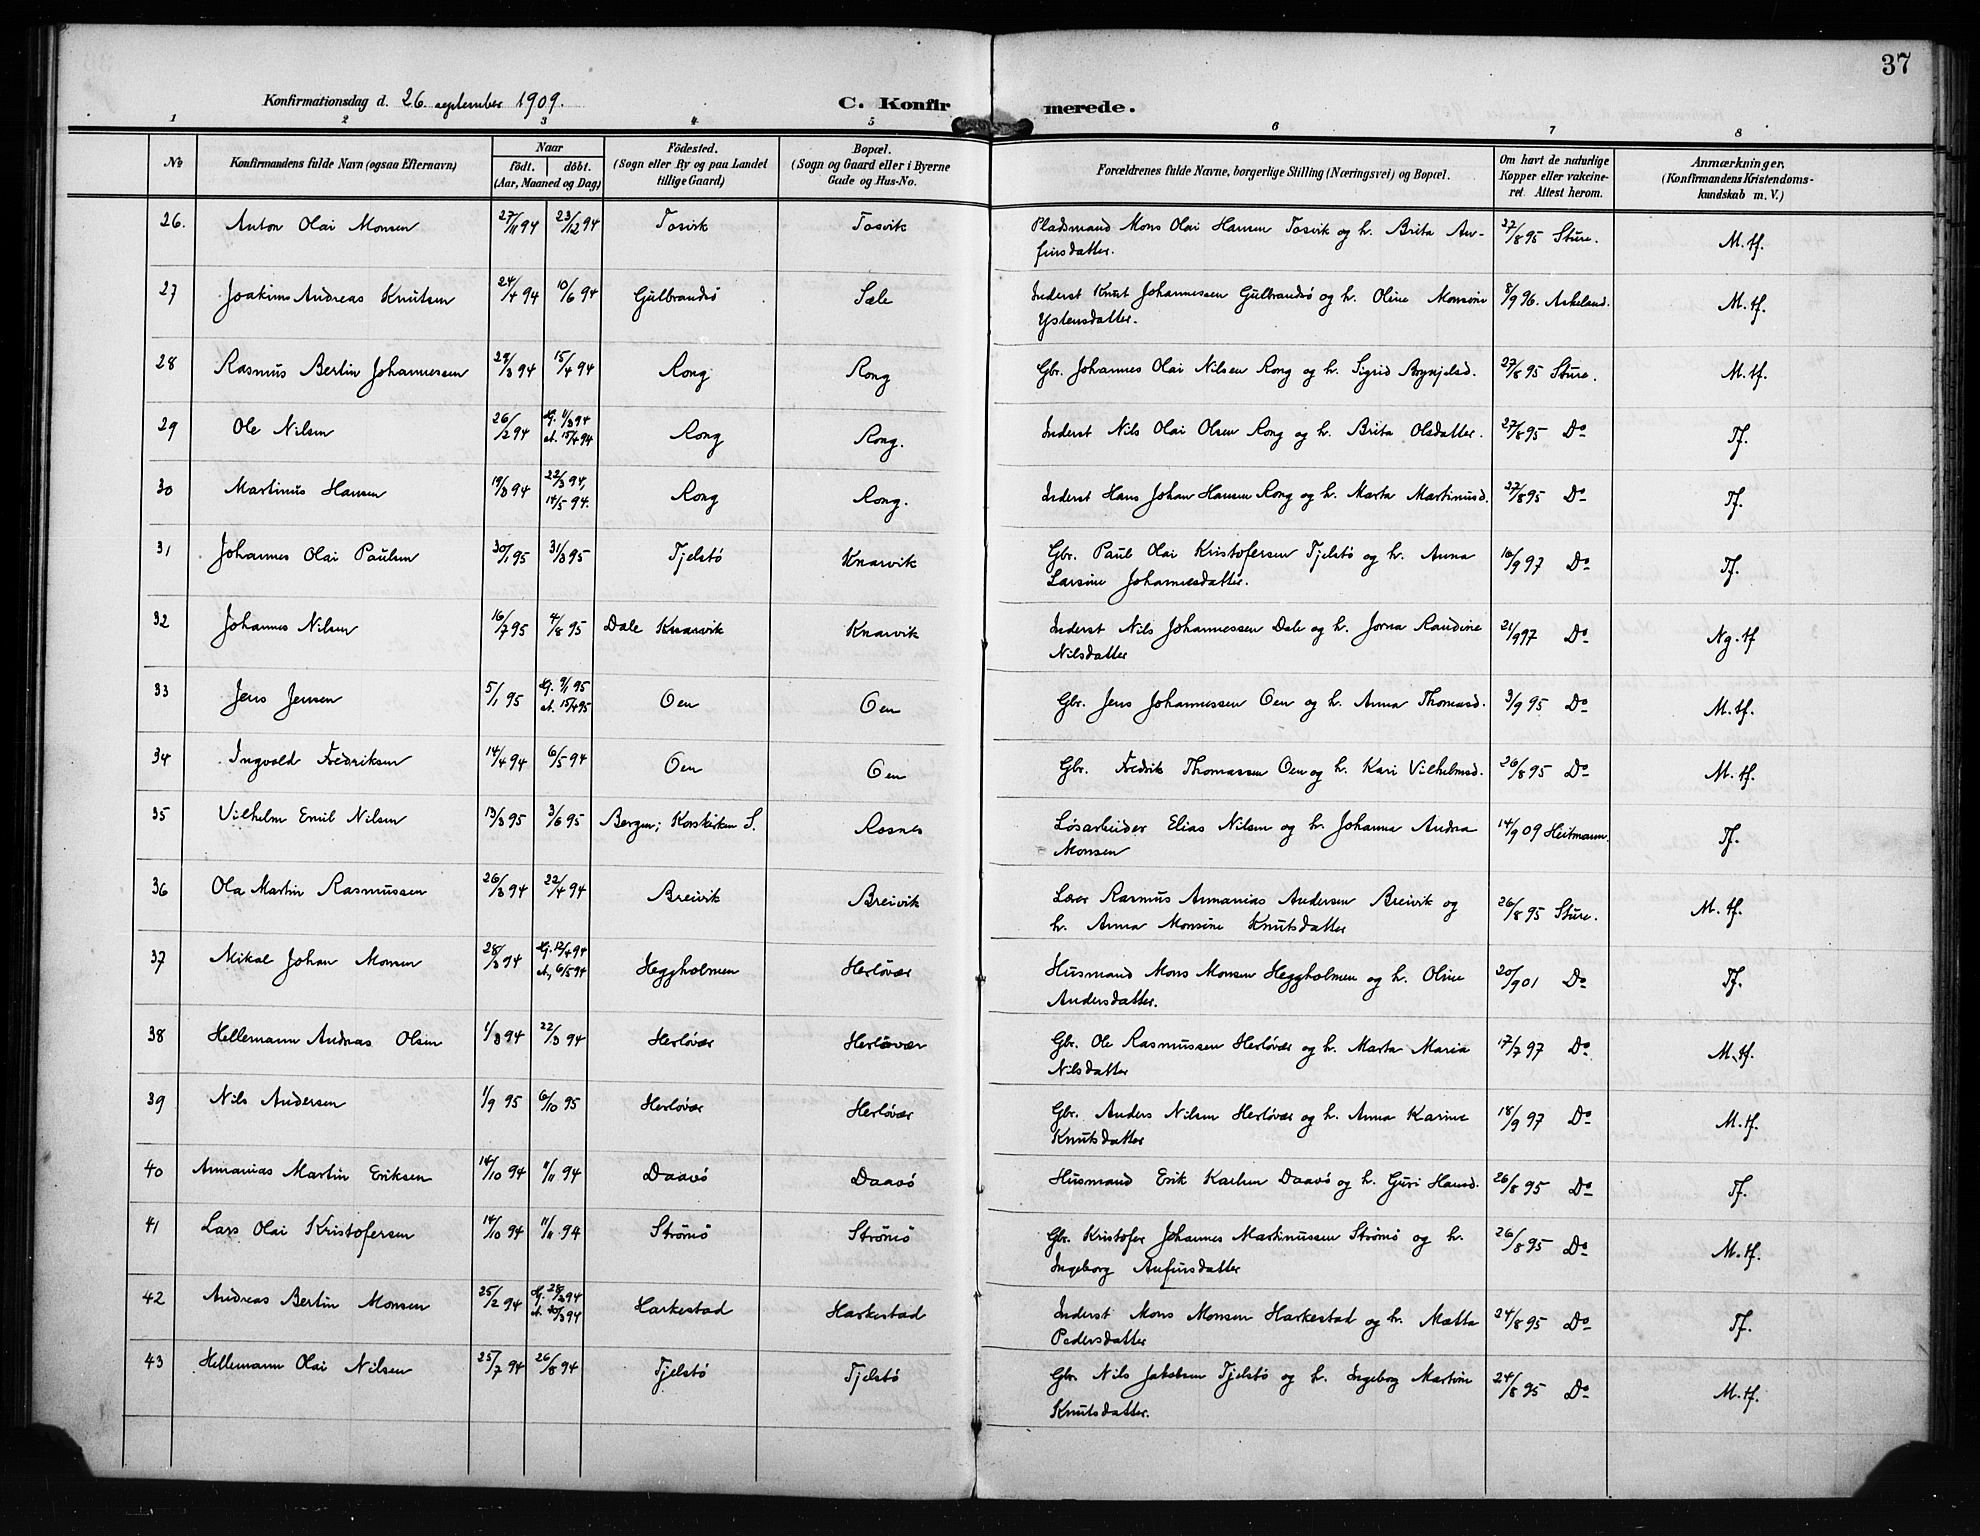 37
Konfirmationsdag d. 26. september 1909. C. Konfirmerede.
1 2 3 4 5 6 7 8
No Konfirmandens fulde Navn (ogsaa Efternavn) Naar født. døbt. (Aar, Maaned og Dag) Fødested. (Sogn eller By og paa Landet tillige Gaard) Bopæl. (Sogn og Gaard eller i Byerne Gade og Hus-No. Forældrenes fulde Navne, borgerlige Stilling (Næringsvei) og Bopæl. Om havt de naturlige Kopper eller vakcineret. Attest herom. Anmærkninger. (Konfirmandens Kristendomskundskab m. V.)
26. Anton Olai Monsen 27/11 94 23/12 94 Tosvik Tosvik Pladsmand Mons Olai Hansen Tosvik og h. Brita An- 27/8 95 Sture. M. tf.
finsdatter.
27 Joakim Andreas Knutsen 24/4 94 10/6 94 Gulbrandsö Sæle Inderst Knut Johannessen Gulbrandsö og h. Oline Monsine 8/9 96. Askeland. M. tf.
Ystensdatter.
28 Rasmus Bertin Johannessen 29/3 94 15/4 94 Rong Rong Gbr. Johannes Olai Nilsen Rong og h. Sigrid Brynjelsd. 27/8 95 Sture. M. tf.
29 Ole Nilsen 26/2 94 Hj. 1/3 94 Rong Rong. Inderst Nils Olai Olsen Rong og h. Brita Olsdatter. 27/8 95 Do Tf.
st. 15/4 94
30 Martinus Hansen 19/3 94 22/3 94, Rong Rong. Inderst Hans Johan Hansen Rong og h. Marta Martinusd. 27/8 95 Do Tf.
14/5 94.
31 Johannes Olai Paulsen 30/1 95 31/3 95 Tjelstö Knarvik Gbr. Paul Olai Kristofersen Tjelstö og h. Anna 16/9 97 Do Tf.
Larsine Johannesdatter.
32 Johannes Nilsen 16/7 95 4/8 95 Dale Knarvik Knarvik Inderst Nils Johannessen Dale og h. Jorna Randine 21/9 97 Do Ng. tf
Nilsdatter
33 Jens Jensen 5/1 95 Hj. 9/1 95 Oen Oen Gbr. Jens Johannessen Oen og h. Anna Thomasd. 3/9 95 Do M. tf.
st. 15/4 95
34 Ingvald Fredriksen 14/4 94 6/5 94 Oen Oen Gbr. Fredrik Thomassen Oen og h. Kari Vilhelmsd. 26/8 95 Do M. tf.
35 Vilhelm Emil Nilsen 13/3 95 3/6 95 Bergen; Korskirken S. Rosnes Løsarbeider Elias Nilsen og h. Johanna Andrea 14/9 09 Heitmann. Tf.
Monsen
36 Ola Martin Rasmussen 26/3 94 22/4 94 Breivik Breivik Lærer Rasmus Annanias Andersen Breivik og 26/8 95 Sture. M. tf.
h. Anna Monsine Knutsdatter
37 Mikal Johan Monsen 28/3 94 Hj. 12/4 94 Heggholmen Herlövær Husmand Mons Monsen Heggholmen og h. Oline 20/9 01 Do Tf.
st. 6/5 94 Andersdatter.
38 Hellemann Andreas Olsen 1/3 94 22/3 94 Herlövær Herlövær Gbr. Ole Rasmussen Herlövær og h. Marta Maria 17/7 97 Do M. tf.
Nilsdatter
39 Nils Andersen 1/9 95 6/10 95 Herlövær Herlövær Gbr. Anders Nilsen Herlövær og h. Anna Karine 18/9 97 Do M. tf.
Knutsdatter
40 Annanias Martin Eriksen 14/10 94 11/11 94 Daavö Daavö Husmand Erik Karlsen Daavö og h. Guri Hansd. 26/8 95 Do Tf.
41 Lars Olai Kristofersen 14/10 94 11/11 94 Strömö Strömö Gbr. Kristofer Johannes Martinussen Strömö og h. 26/8 95 Do M. tf.
Ingeborg Anfinsdatter
42 Andreas Bertin Monsen 25/2 94 Hj. 28/2 94 Harkestad Harkestad Inderst Mons Monsen Harkestad og h. Mætta 24/8 95 Do Tf.
st. 20/3 94 Pedersdatter
43 Hellemann Olai Nilsen 25/7 94 26/8 94 Tjelstö Tjelstö Gbr. Nils Jakobsen Tjelstö og h. Ingeborg Martine 24/8 95 Do M. tf.
Knutsdatter.